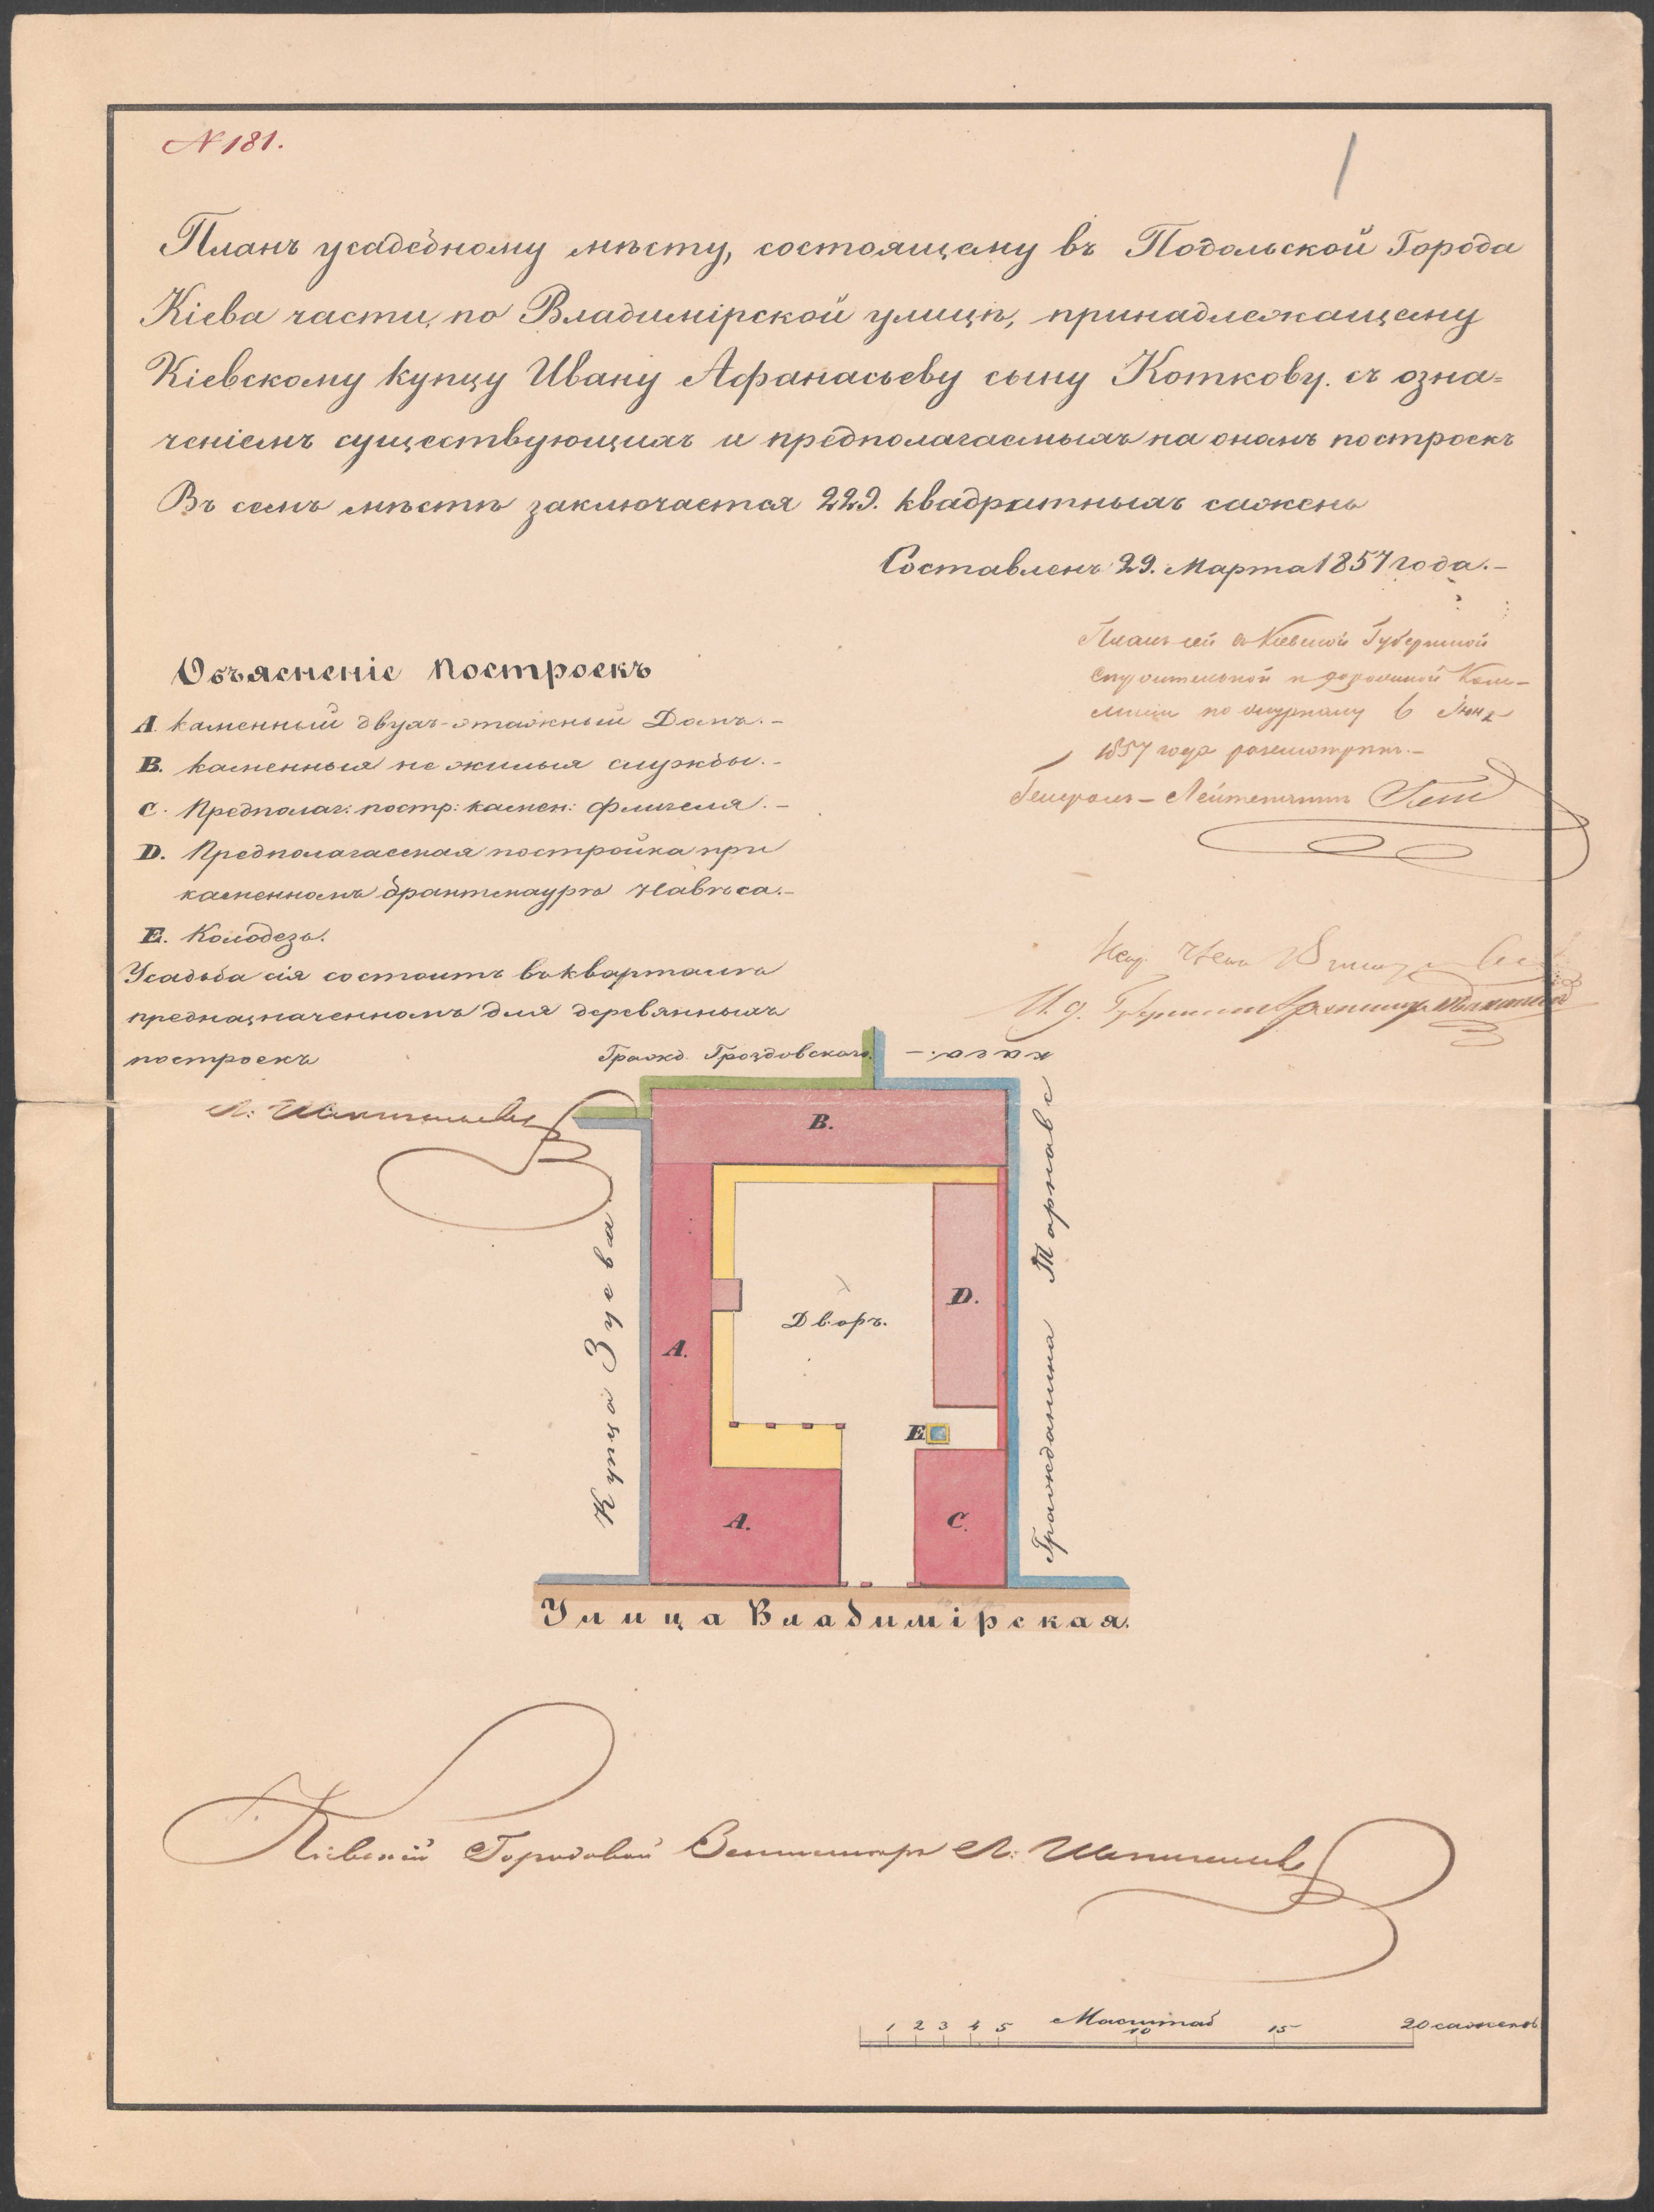 N 181.
1
Планъ усадебному мѣсту, состоящему въ Подольской Города
Кіева части, по Владимірской улицѣ, принадлежащему
Кіевскому купцу Ивану Афанасьеву сыну Коткову. съ озна=
ченіемъ существующихъ и предполагаемыхъ на ономъ построекъ
Въ семъ мѣстѣ заключается 229. квадратныхъ сажень
Составленъ 29. Марта 1857 года.-
Планъ сей въ Кіевской Губернской
Строительной и дорожной Ком-
мисіи по журналу 6 Іюня
1857 года разсмотрѣнъ.-
Генералъ-Лейтенантъ
Объясненіе построекъ
A. каменный двухъ-этажный Домъ.-
B. каменныя не жилыя службы.-
C. Предполаг: постр: камен: флигеля.-
D. Предполагаемая постройка при
каменномъ брантмаурѣ навѣса.-
E. Колодезь.
Усадьба сія состоитъ въ кварталѣ
предназначенномъ для деревянныхъ
построекъ
И. д.
Гражд. Гроздовскаго.
Купца Зуева
Гражданина Тарнавскаго.-
B.
A.
Дворъ.
D.
E
A.
C.
Улица Владимірская.
Кіевскій Городовой Землемѣръ Л:
Масштаб
1 2 3 4 5 10 15 20 саженей